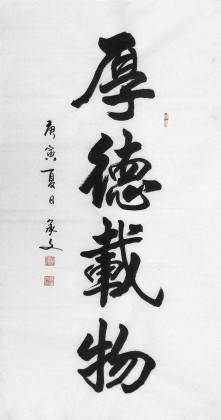 厚德載物
庚寅夏日